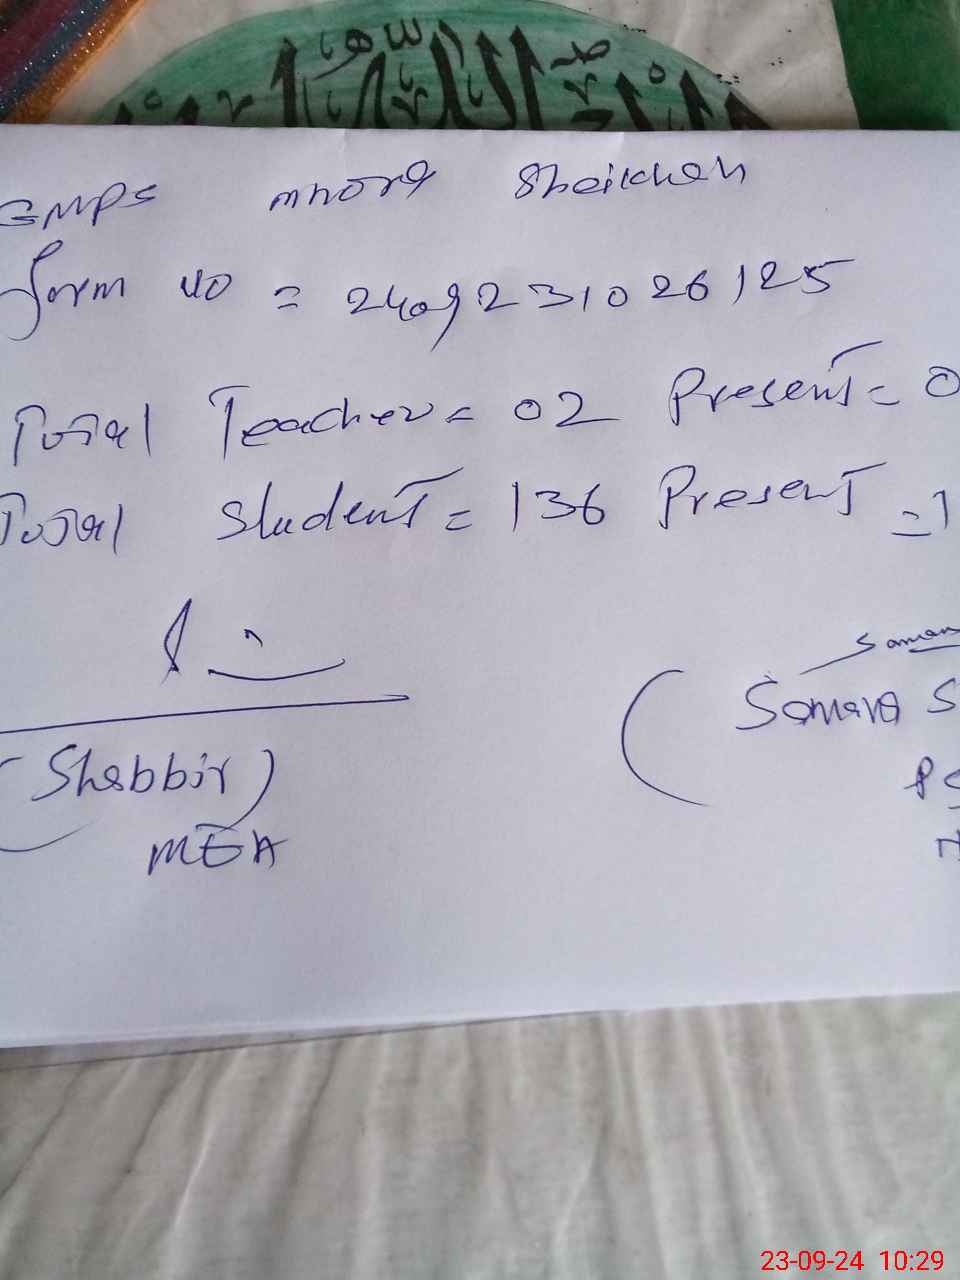 GMPS mnora Sheikhan
form no = 2409231026125
Total Teacher = 02 Present = 0
Total Student = 136 Present = 1
Saman
(Shabbir)
(Somara S
MEA
23-09-24 10:29